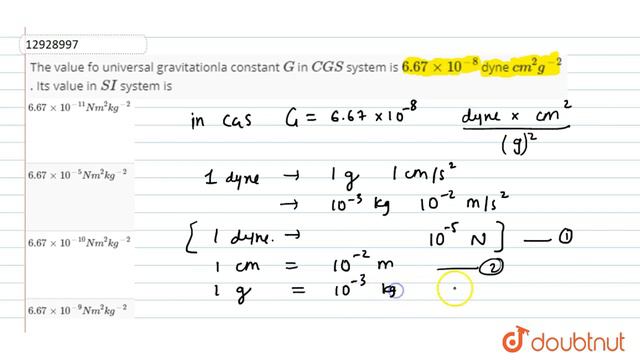 12928997
The value fo universal gravitationla constant G in CGS system is 6.67 × 10⁻⁸ dyne cm²g⁻²
. Its value in SI system is
6.67 × 10⁻¹¹Nm²kg⁻²
6.67 × 10⁻⁵Nm²kg⁻²
6.67 × 10⁻¹⁰Nm²kg⁻²
6.67 × 10⁻⁹Nm²kg⁻²
in CGS G = 6.67 × 10⁻⁸ dyne × cm² / (g)²
1 dyne → 1 g 1 cm/s²
→ 10⁻³ kg 10⁻² m/s²
[ 1 dyne. → 10⁻⁵ N ] — ①
1 cm = 10⁻² m — ②
1 g = 10⁻³ kg
doubtnut